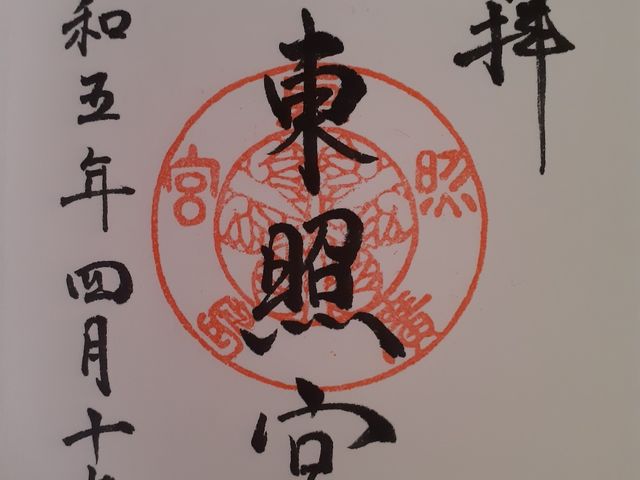 拝
東照宮
和五年四月十
照
宮